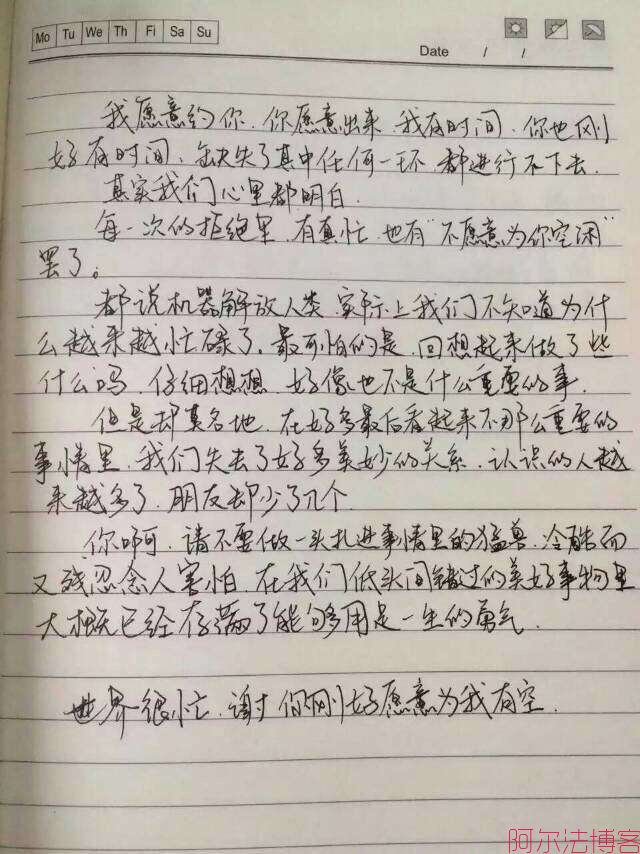 Mo Tu We Th Fi Sa Su
Date / /
我愿意约你,你愿意出来,我有时间,你也刚
好有时间,缺失了其中任何一环,都进行不下去.
其实我们心里都明白.
每一次的拒绝里,有真忙,也有"不愿意为你空闲"
罢了。
都说机器解放人类,实际上我们不知道为什
么越来越忙碌了,最可怕的是,回想起来做了些
什么吗,仔细想想,好像也不是什么重要的事.
但是却莫名地,在好多最后看起来不那么重要的
事情里,我们失去了好多美妙的关系,认识的人越
来越多了,朋友却少了几个.
你啊,请不要做一头扎进事情里的猛兽,冷酷而
又残忍念人害怕,在我们低头间错过的美好事物里
大概已经存满了能够用是一生的勇气.
世界很忙,谢你刚好愿意为我有空.
阿尔法博客